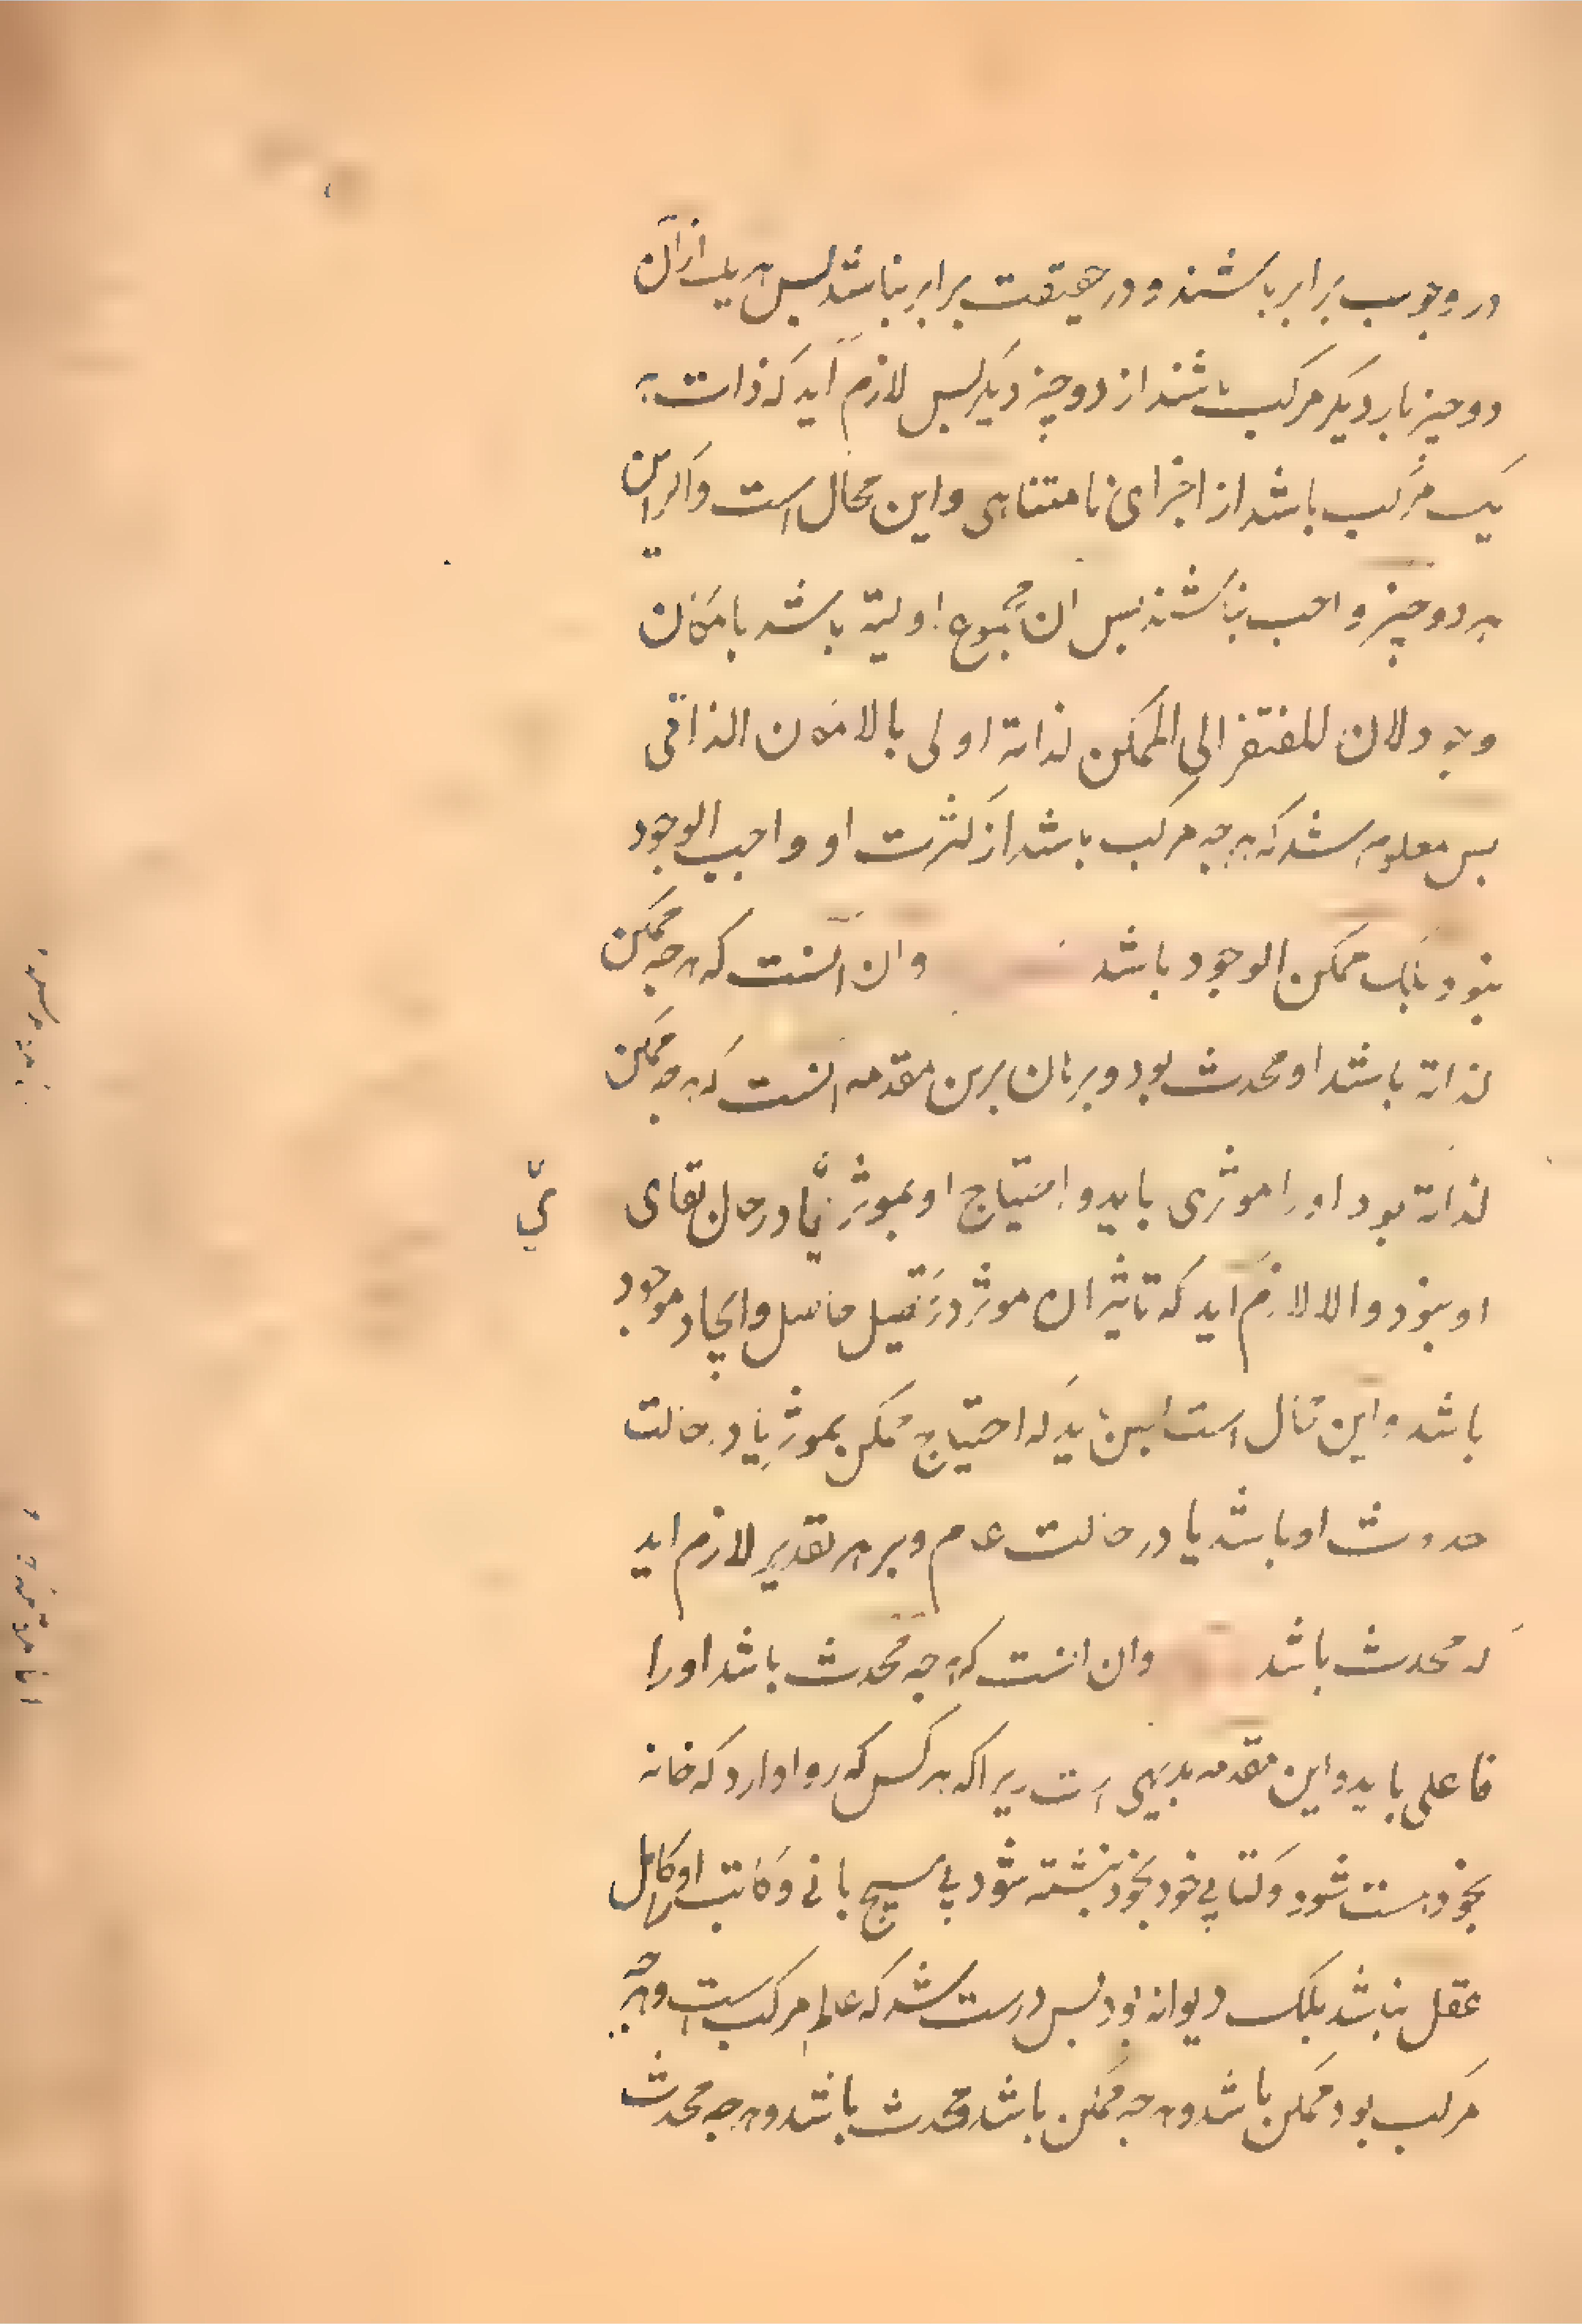 در وجوب برابر باشند و در حقیقت برابر نباشد بس هر یک از آن
دو چیز بار دیکر مرکب باشند از دو چیز دیکر بس لازم آید که ذات هر
یک مرکب باشد از اجزای نامتناهی و این محال است و اکر این
هر دو چیز واجب نباشند بس ان مجموع اولیتر باشد بامکان
وجود لان المفتقر الی الممکن لذاته اولی بالامکان الذاتی
بس معلوم شد که هرجه مرکب باشد از کثرت او واجب الوجود
نبود بلک ممکن الوجود باشد وان آنست که هرجه ممکن
لذاته باشد او محدث بود و برهان برین مقدمه انست که هرجه ممکن
لذاته بود او را موثری باید و احتیاج او بموثر یا در حال بقای
او بود والا لازم آید که تاثیر ان موثر در تحصیل حاصل و ایجاد موجود
باشد و این محال است بس باید که احتیاج ممکن بموثر یا در حالت
حدوث او باشد یا در حالت عدم و بر هر تقدیر لازم اید
که محدث باشد وان انست که هرجه محدث باشد او را
فاعلی باید و این مقدمه بدیهی است زیرا که هر کس که روا دارد که خانه
بخود هست شود و کتابی خود بخود نبشته شود بی هیچ بانی و کاتب او کامل
عقل نباشد بلک دیوانه بود بس درست شد که عالم مرکب است و هرجه
مرکب بود ممکن باشد و هرجه ممکن باشد محدث باشد و هرجه محدث